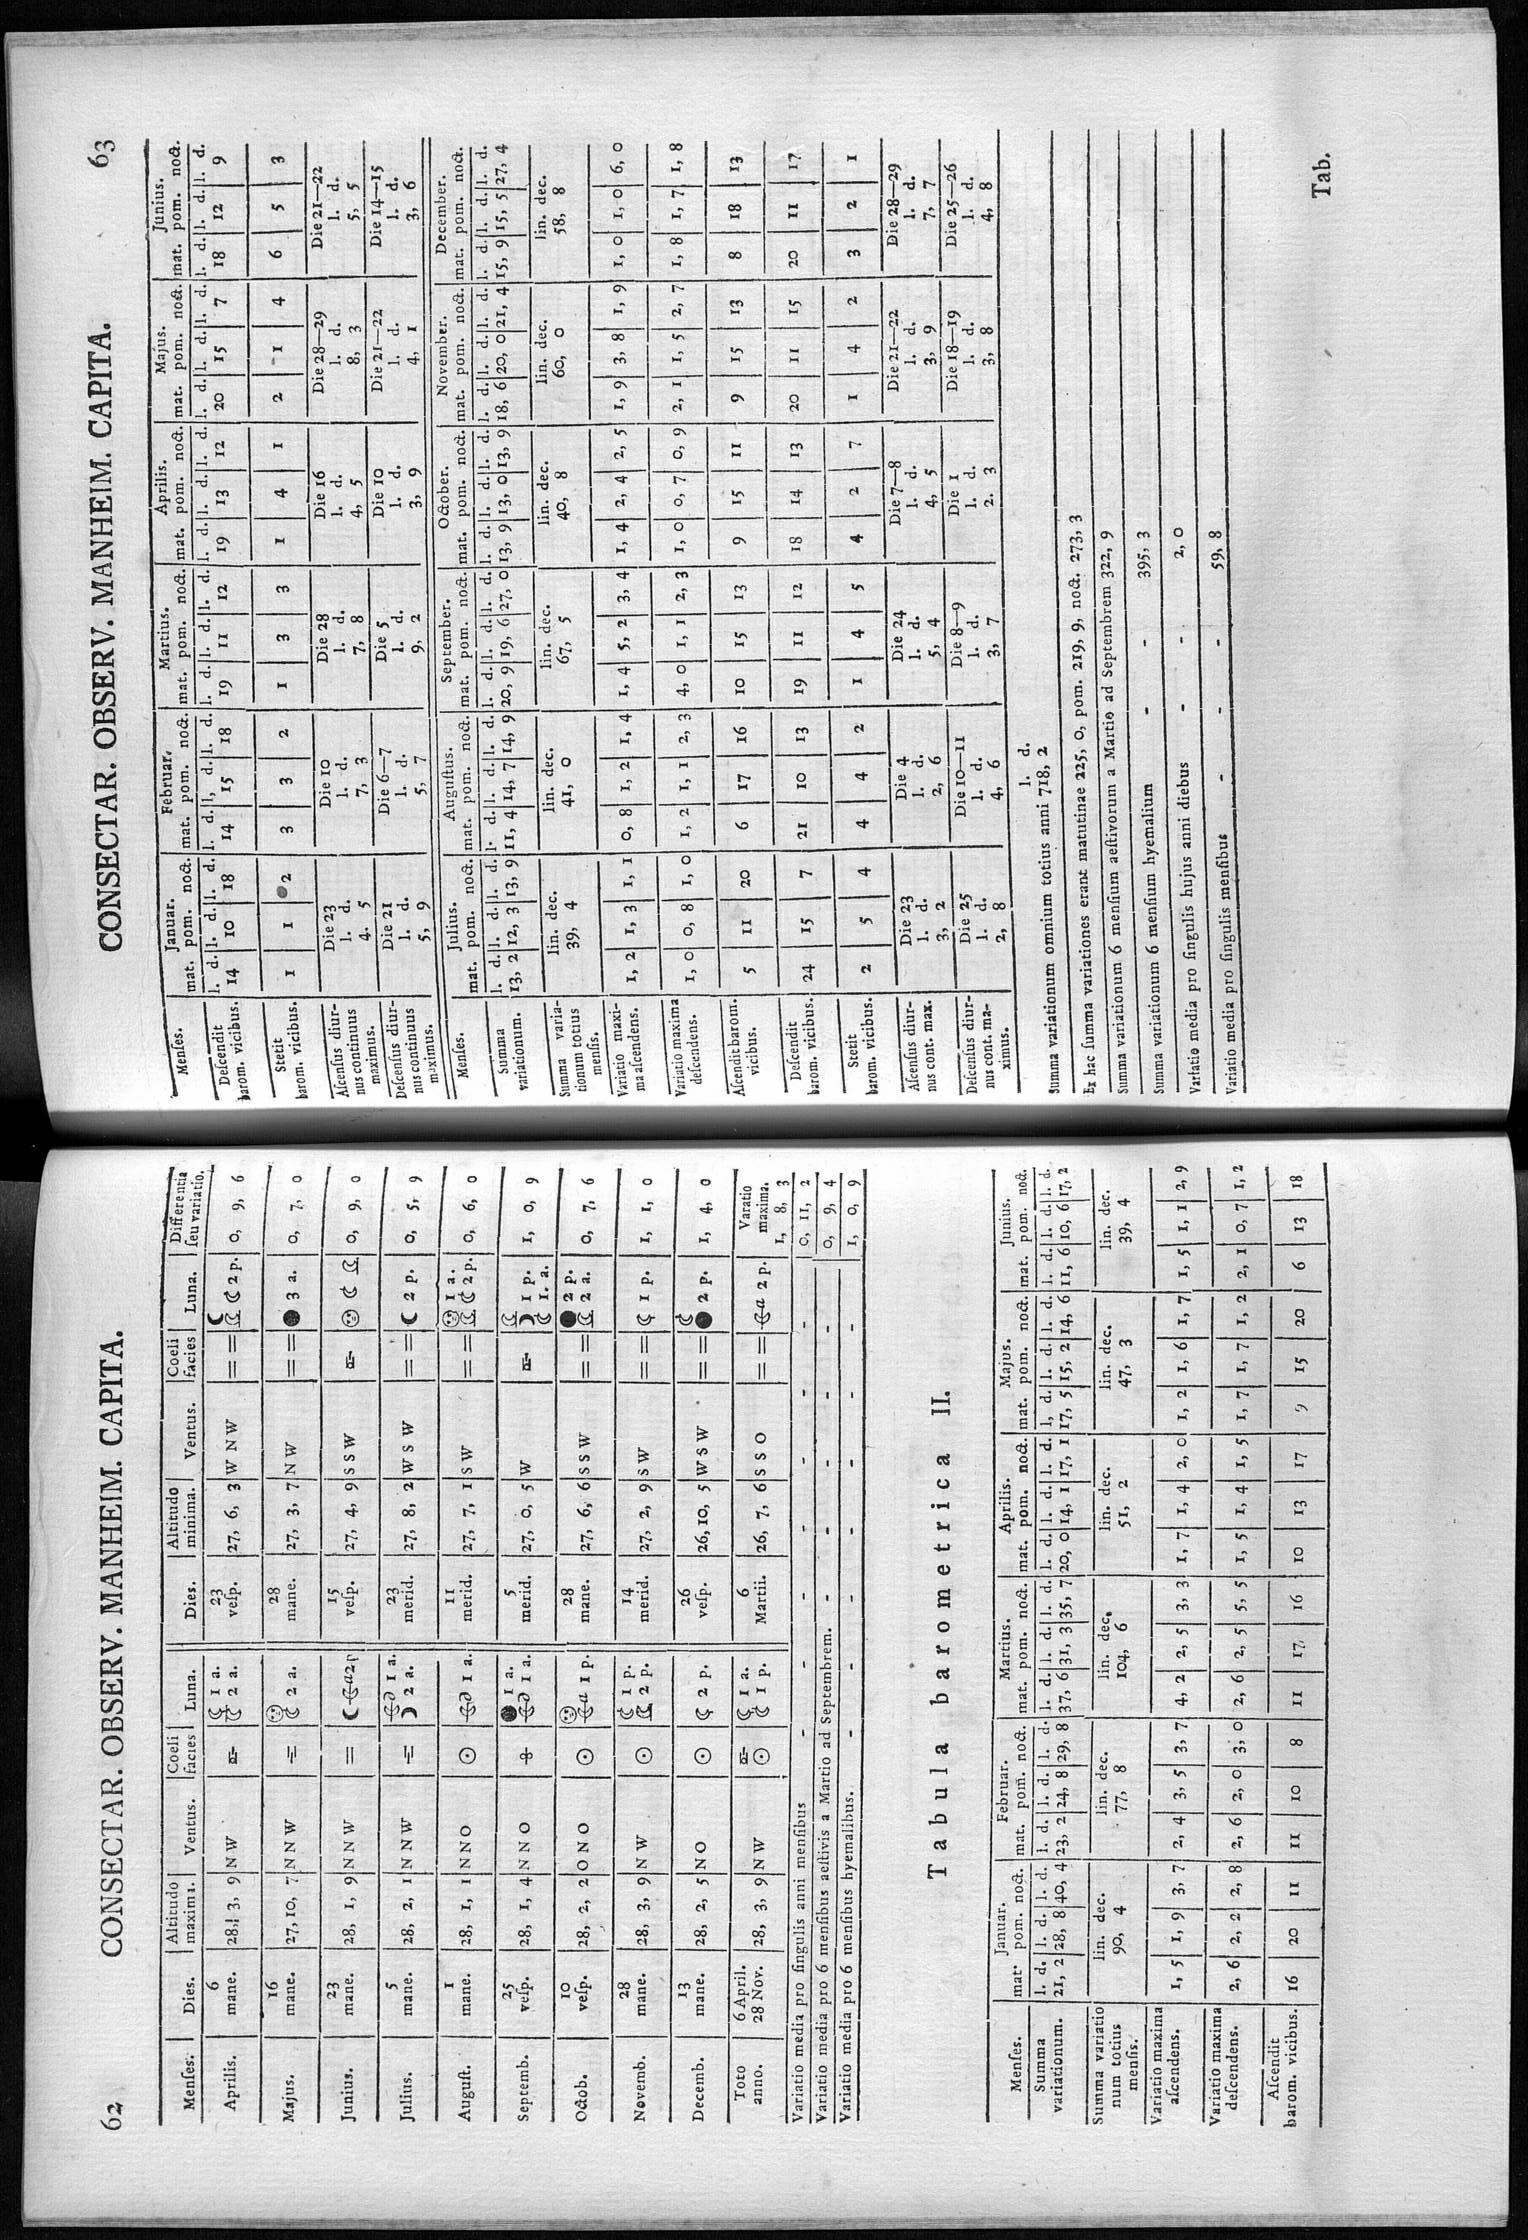 62 CONSECTAR. OBSERV. MANHEIM. CAPITA.
Menſes. Dies. Altitudo maxima. Ventus. Coeli facies Luna. Dies. Altitudo minima. Ventus. Coeli facies Luna. Differentia ſeu variatio.
Aprilis. 6 mane. 28, 3, 9 N W 1 a. 2 a. 23 veſp. 27, 6, 3 W N W = = 2 p. 0, 9, 6
Majus. 16 mane. 27, 10, 7 N N W 2 a. 28 mane. 27, 3, 7 N W = = 3 a. 0, 7, 0
Junius. 23 mane. 28, 1, 9 N N W = a 2 p 15 veſp. 27, 4, 9 S S W 0, 9, 0
Julius. 5 mane. 28, 2, 1 N N W 1 a. 2 a. 23 merid. 27, 8, 2 W S W = = 2 p. 0, 5, 9
Auguſt. 1 mane. 28, 1, 1 N N O ☉ 1 a. 11 merid. 27, 7, 1 S W = = 1 a. 2 p. 0, 6, 0
Septemb. 25 veſp. 28, 1, 4 N N O 1 a. 1 a. 5 merid. 27, 0, 5 W 1 p. 1. a. 1, 0, 9
Octob. 10 veſp. 28, 2, 2 O N O ☉ a 1 p. 28 mane. 27, 6, 6 S S W = = 2 p. 2 a. 0, 7, 6
Novemb. 28 mane. 28, 3, 9 N W ☉ 1 p. 2 p. 14 merid. 27, 2, 9 S W = = 1 p. 1, 1, 0
Decemb. 13 mane. 28, 2, 5 N O ☉ 2 p. 26 veſp. 26, 10, 5 W S W = = 2 p. 1, 4, 0
Toto anno. 6 April. 28 Nov. 28, 3, 9 N W ☉ 1 a. 1 p. 6 Martii. 26, 7, 6 S S O = = a 2 p. Varatio maxima. 1, 8, 3
Variatio media pro ſingulis anni menſibus - - - - - - 0, 11, 2
Variatio media pro 6 menſibus aeſtivis a Martio ad Septembrem. - - - - - 0, 9, 4
Variatio media pro 6 menſibus hyemalibus. - - - - - - 1, 0, 9
Tabula barometrica II.
Menſes. Januar. Februar. Martius. Aprilis. Majus. Junius.
mat. pom. noct. mat. pom. noct. mat. pom. noct. mat. pom. noct. mat. pom. noct. mat. pom. noct.
l. d. l. d. l. d. l. d. l. d. l. d. l. d. l. d. l. d. l. d. l. d. l. d. l. d. l. d. l. d. l. d. l. d. l. d.
Summa variationum. 21, 2 28, 8 40, 4 23, 2 24, 8 29, 8 37, 6 31, 3 35, 7 20, 0 14, 1 17, 1 17, 5 15, 2 14, 6 11, 6 10, 6 17, 2
Summa variatio num totius menſis. lin. dec. 90, 4 lin. dec. 77, 8 lin. dec. 104, 6 lin. dec. 51, 2 lin. dec. 47, 3 lin. dec. 39, 4
Variatio maxima aſcendens. 1, 5 1, 9 3, 7 2, 4 3, 5 3, 7 4, 2 2, 5 3, 3 1, 7 1, 4 2, 0 1, 2 1, 6 1, 7 1, 5 1, 1 2, 9
Variatio maxima deſcendens. 2, 6 2, 2 2, 8 2, 6 2, 0 3, 0 2, 6 2, 5 5, 5 1, 5 1, 4 1, 5 1, 7 1, 7 1, 2 2, 1 0, 7 1, 2
Aſcendit barom. vicibus. 16 20 11 11 10 8 11 17. 16 10 13 17 9 15 20 6 13 18
CONSECTAR. OBSERV. MANHEIM. CAPITA. 63
Menſes. Januar. Februar. Martius. Aprilis. Majus. Junius.
mat. pom. noct. mat. pom. noct. mat. pom. noct. mat. pom. noct. mat. pom. noct. mat. pom. noct.
l. d. l. d. l. d. l. d. l. d. l. d. l. d. l. d. l. d. l. d. l. d. l. d. l. d. l. d. l. d. l. d. l. d. l. d.
Deſcendit barom. vicibus. 14 10 18 14 15 18 19 11 12 19 13 12 20 15 7 18 12 9
Stetit barom. vicibus. 1 1 2 3 3 2 1 3 3 1 4 1 2 1 4 6 5 3
Aſcenſus diurnus continuus maximus. Die 23 l. d. 4. 5 Die 10 l. d. 7, 3 Die 28 l. d. 7, 8 Die 16 l. d. 4, 5 Die 28—29 l. d. 8, 3 Die 21—22 l. d. 5, 5
Deſcenſus diurnus continuus maximus. Die 21 l. d. 5, 9 Die 6—7 l. d. 5, 7 Die 5 l. d. 9, 2 Die 10 l. d. 3, 9 Die 21—22 l. d. 4, 1 Die 14—15 l. d. 3, 6
Menſes. Julius. Auguſtus. September. October. November. December.
mat. pom. noct. mat. pom. noct. mat. pom. noct. mat. pom. noct. mat. pom. noct. mat. pom. noct.
l. d. l. d. l. d. l. d. l. d. l. d. l. d. l. d. l. d. l. d. l. d. l. d. l. d. l. d. l. d. l. d. l. d. l. d.
Summa variationum. 13, 2 12, 3 13, 9 11, 4 14, 7 14, 9 20, 9 19, 6 27, 0 13, 9 13, 0 13, 9 18, 6 20, 0 21, 4 15, 9 15, 5 27, 4
Summa variationum totius menſis. lin. dec. 39, 4 lin. dec. 41, 0 lin. dec. 67, 5 lin. dec. 40, 8 lin. dec. 60, 0 lin. dec. 58, 8
Variatio maxima aſcendens. 1, 2 1, 3 1, 1 0, 8 1, 2 1, 4 1, 4 5, 2 3, 4 1, 4 2, 4 2, 5 1, 9 3, 8 1, 9 1, 0 1, 0 6, 0
Variatio maxima deſcendens. 1, 0 0, 8 1, 0 1, 2 1, 1 2, 3 4, 0 1, 1 2, 3 1, 0 0, 7 0, 9 2, 1 1, 5 2, 7 1, 8 1, 7 1, 8
Aſcendit barom. vicibus. 5 11 20 6 17 16 10 15 13 9 15 11 9 15 13 8 18 13
Deſcendit barom. vicibus. 24 15 7 21 10 13 19 11 12 18 14 13 20 11 15 20 11 17
Stetit barom. vicibus. 2 5 4 4 4 2 1 4 5 4 2 7 1 4 2 3 2 1
Aſcenſus diurnus cont. max. Die 23 l. d. 3, 2 Die 4 l. d. 2, 6 Die 24 l. d. 5, 4 Die 7—8 l. d. 4, 5 Die 21—22 l. d. 3, 9 Die 28—29 l. d. 7, 7
Deſcenſus diurnus cont. maximus. Die 25 l. d. 2, 8 Die 10—11 l. d. 4, 6 Die 8—9 l. d. 3, 7 Die 1 l. d. 2. 3 Die 18—19 l. d. 3, 8 Die 25—26 l. d. 4, 8
l. d.
Summa variationum omnium totius anni 718, 2
Ex hac ſumma variationes erant matutinae 225, 0, pom. 219, 9, noct. 273, 3
Summa variationum 6 menſium aeſtivorum a Martio ad Septembrem 322, 9
Summa variationum 6 menſium hyemalium - - 395, 3
Variatio media pro ſingulis hujus anni diebus - - 2, 0
Variatio media pro ſingulis menſibus - - - 59, 8
Tab.